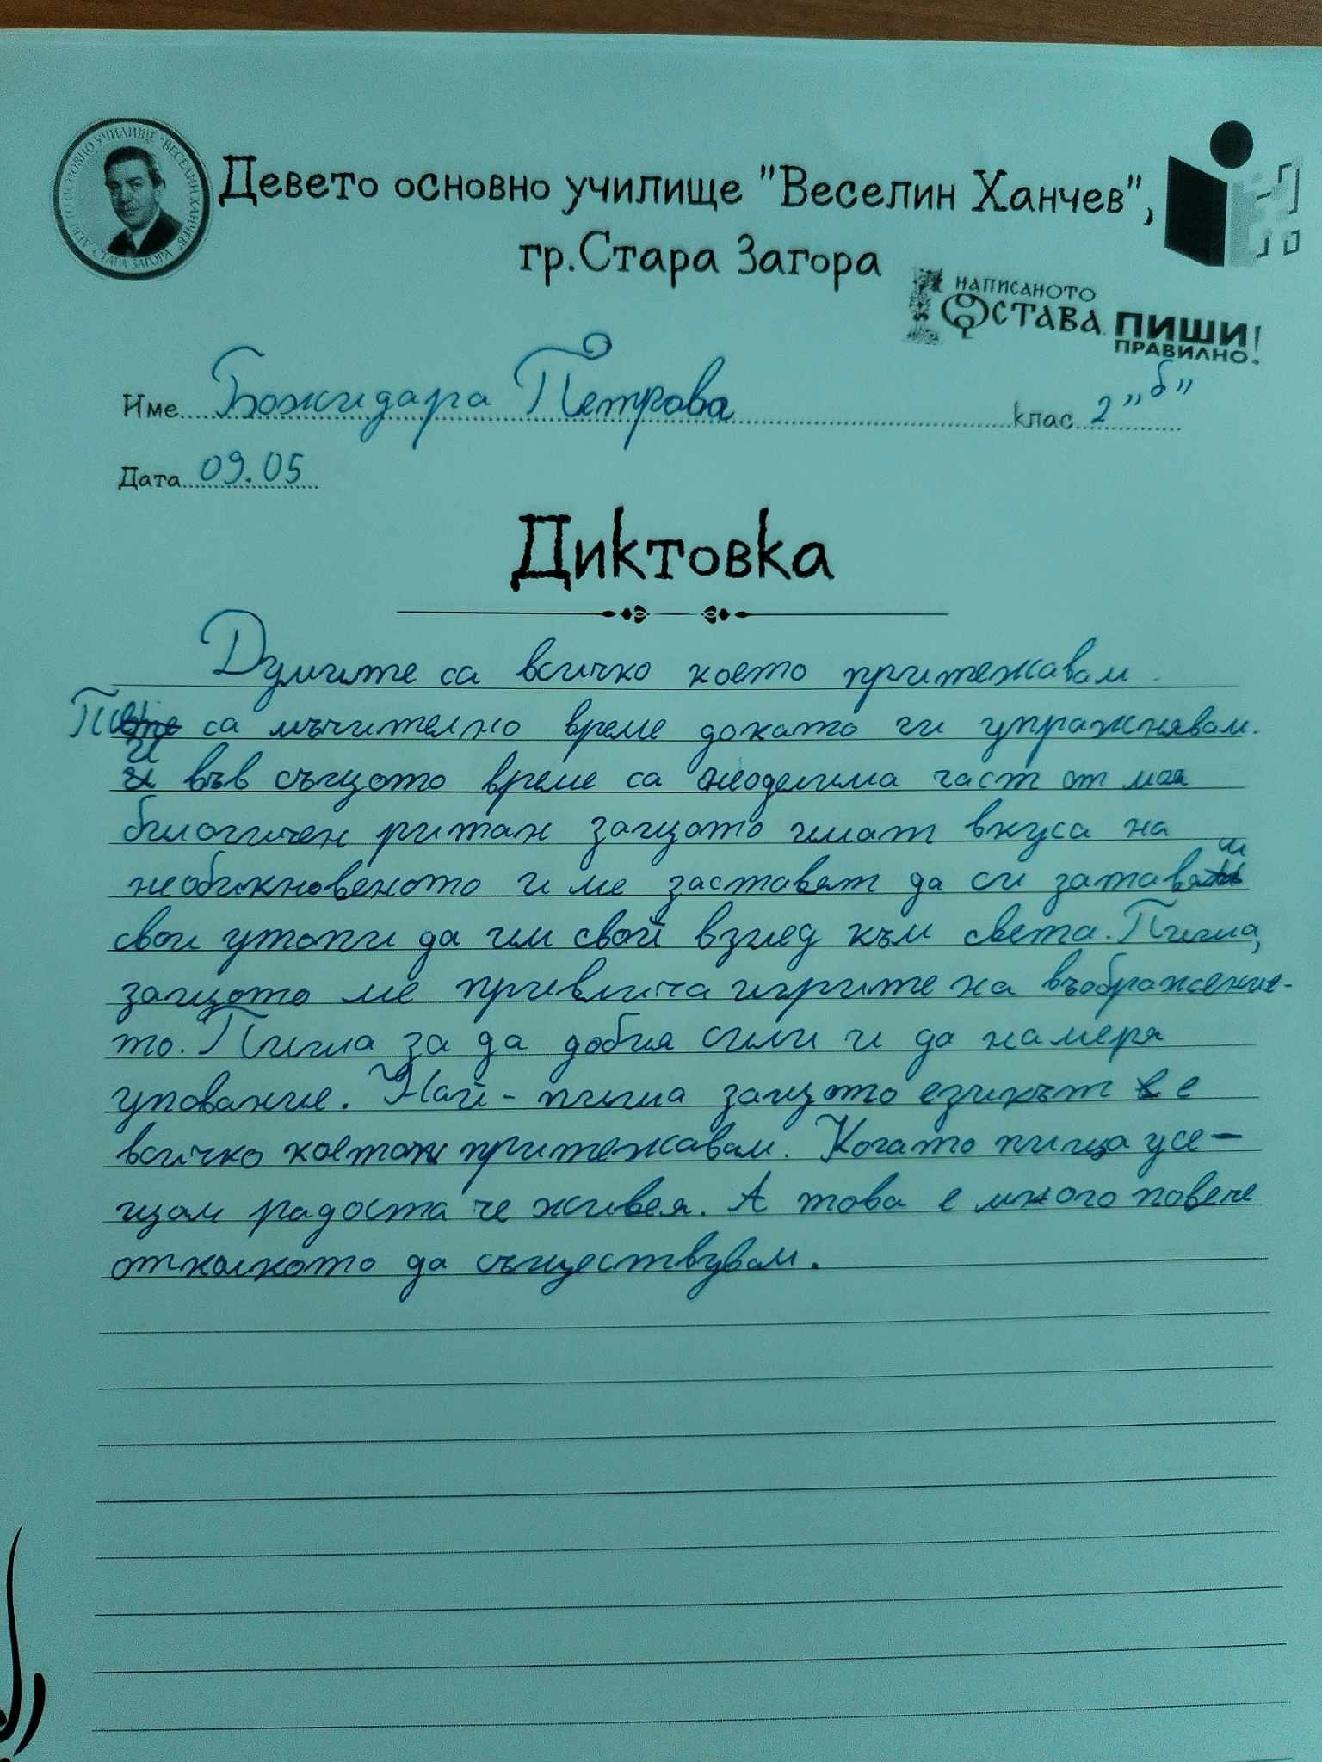 ДЕВЕТО ОСНОВНО УЧИЛИЩЕ "ВЕСЕЛИН ХАНЧЕВ" СТАРА ЗАГОРА
Девето основно училище "Веселин Ханчев",
гр.Стара Загора
НАПИСАНОТО
ОСТАВА. ПИШИ!
ПРАВИЛНО.
Име Божидара Петрова клас 2 "б"
Дата 09.05
Диктовка
Думите са всичко което притежавам.
са мъчително време докато ги упражнявам.
и във същото време са неоделима част от моя
биогичен ритан защото имат вкуса на
необикновеното и ме заставят да си затавям
свои утопи да им свой взглед към света. Пиша,
защото ме привлича игрите на въображение-
то. Пиша за да добия сили и да намеря
упование. Най-пиша защото езикът е
всичко което притежавам. Когато пища усе-
щам радоста че живея. А това е много повече
отколкото да съществувам.